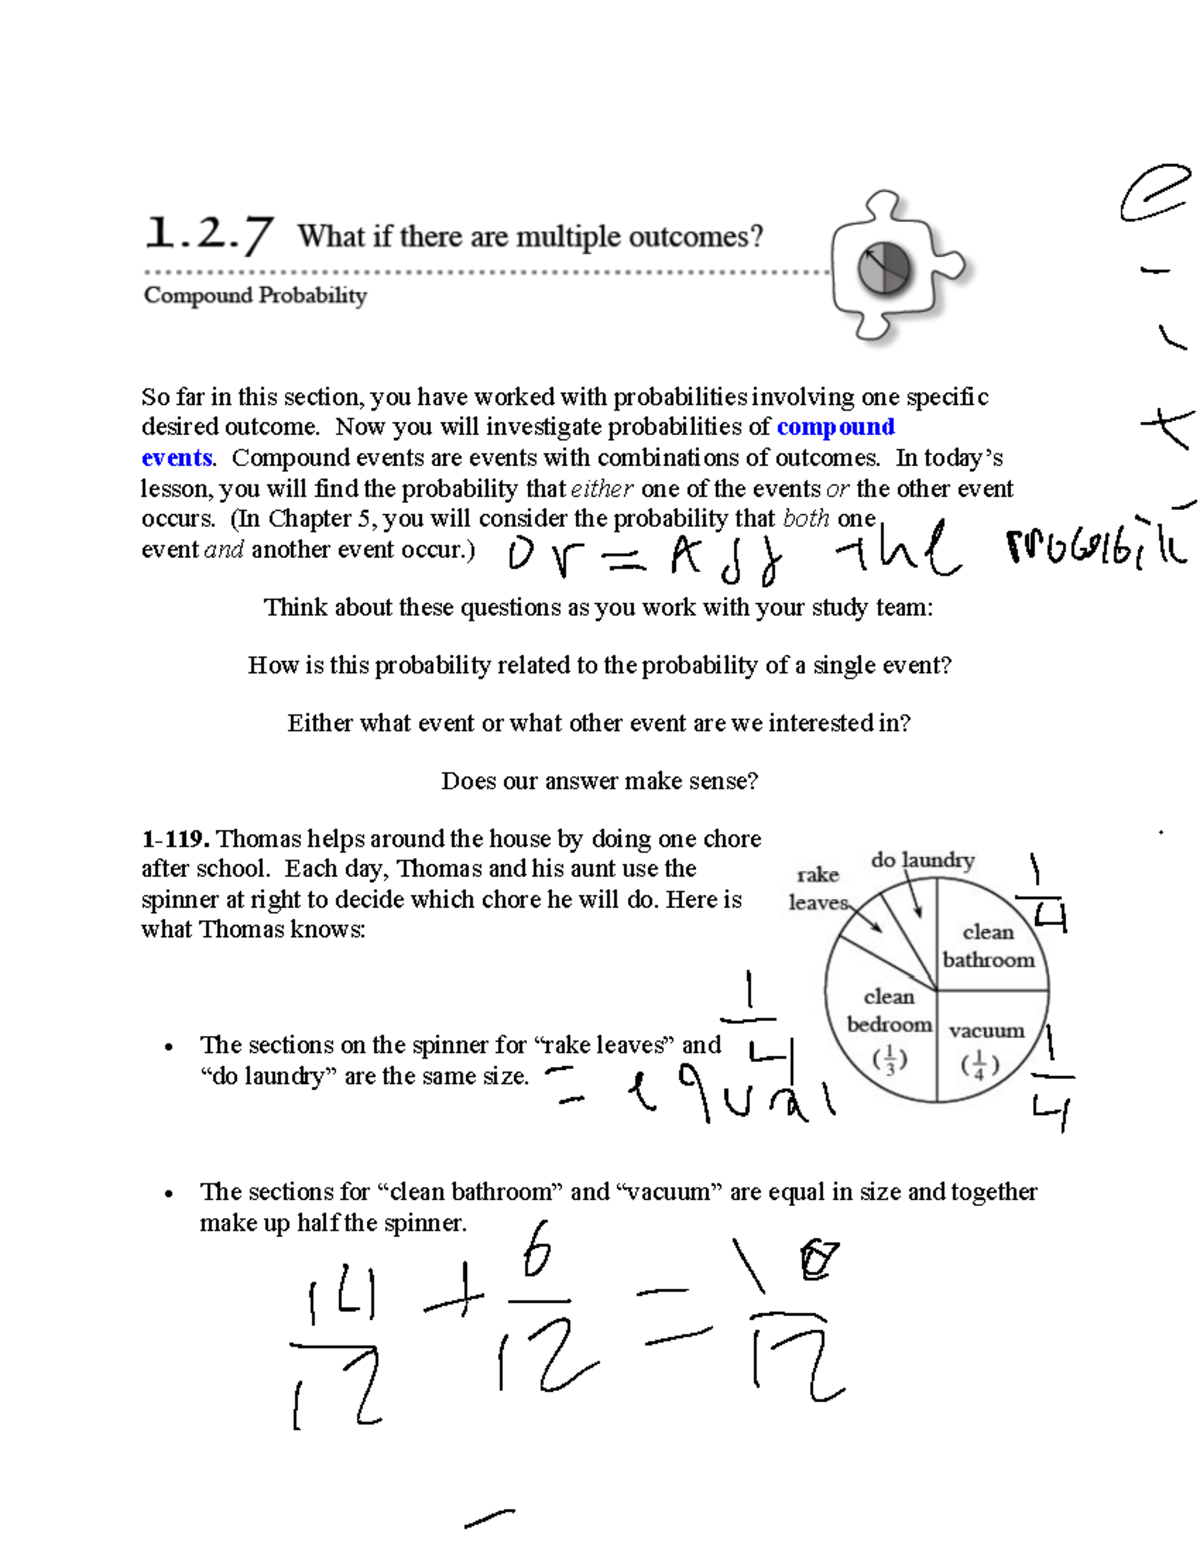 1.2.7 What if there are multiple outcomes?
Compound Probability
So far in this section, you have worked with probabilities involving one specific
desired outcome. Now you will investigate probabilities of compound
events. Compound events are events with combinations of outcomes. In today’s
lesson, you will find the probability that either one of the events or the other event
occurs. (In Chapter 5, you will consider the probability that both one
event and another event occur.)
or = Add the
Think about these questions as you work with your study team:
How is this probability related to the probability of a single event?
Either what event or what other event are we interested in?
Does our answer make sense?
1-119. Thomas helps around the house by doing one chore
after school. Each day, Thomas and his aunt use the
spinner at right to decide which chore he will do. Here is
what Thomas knows:
do laundry
rake
leaves
clean
bathroom
clean
bedroom
(1/3)
vacuum
(1/4)
1/4
1/4
1/4
• The sections on the spinner for “rake leaves” and
“do laundry” are the same size.
= equal
• The sections for “clean bathroom” and “vacuum” are equal in size and together
make up half the spinner.
14/12 + 6/12 = 10/12